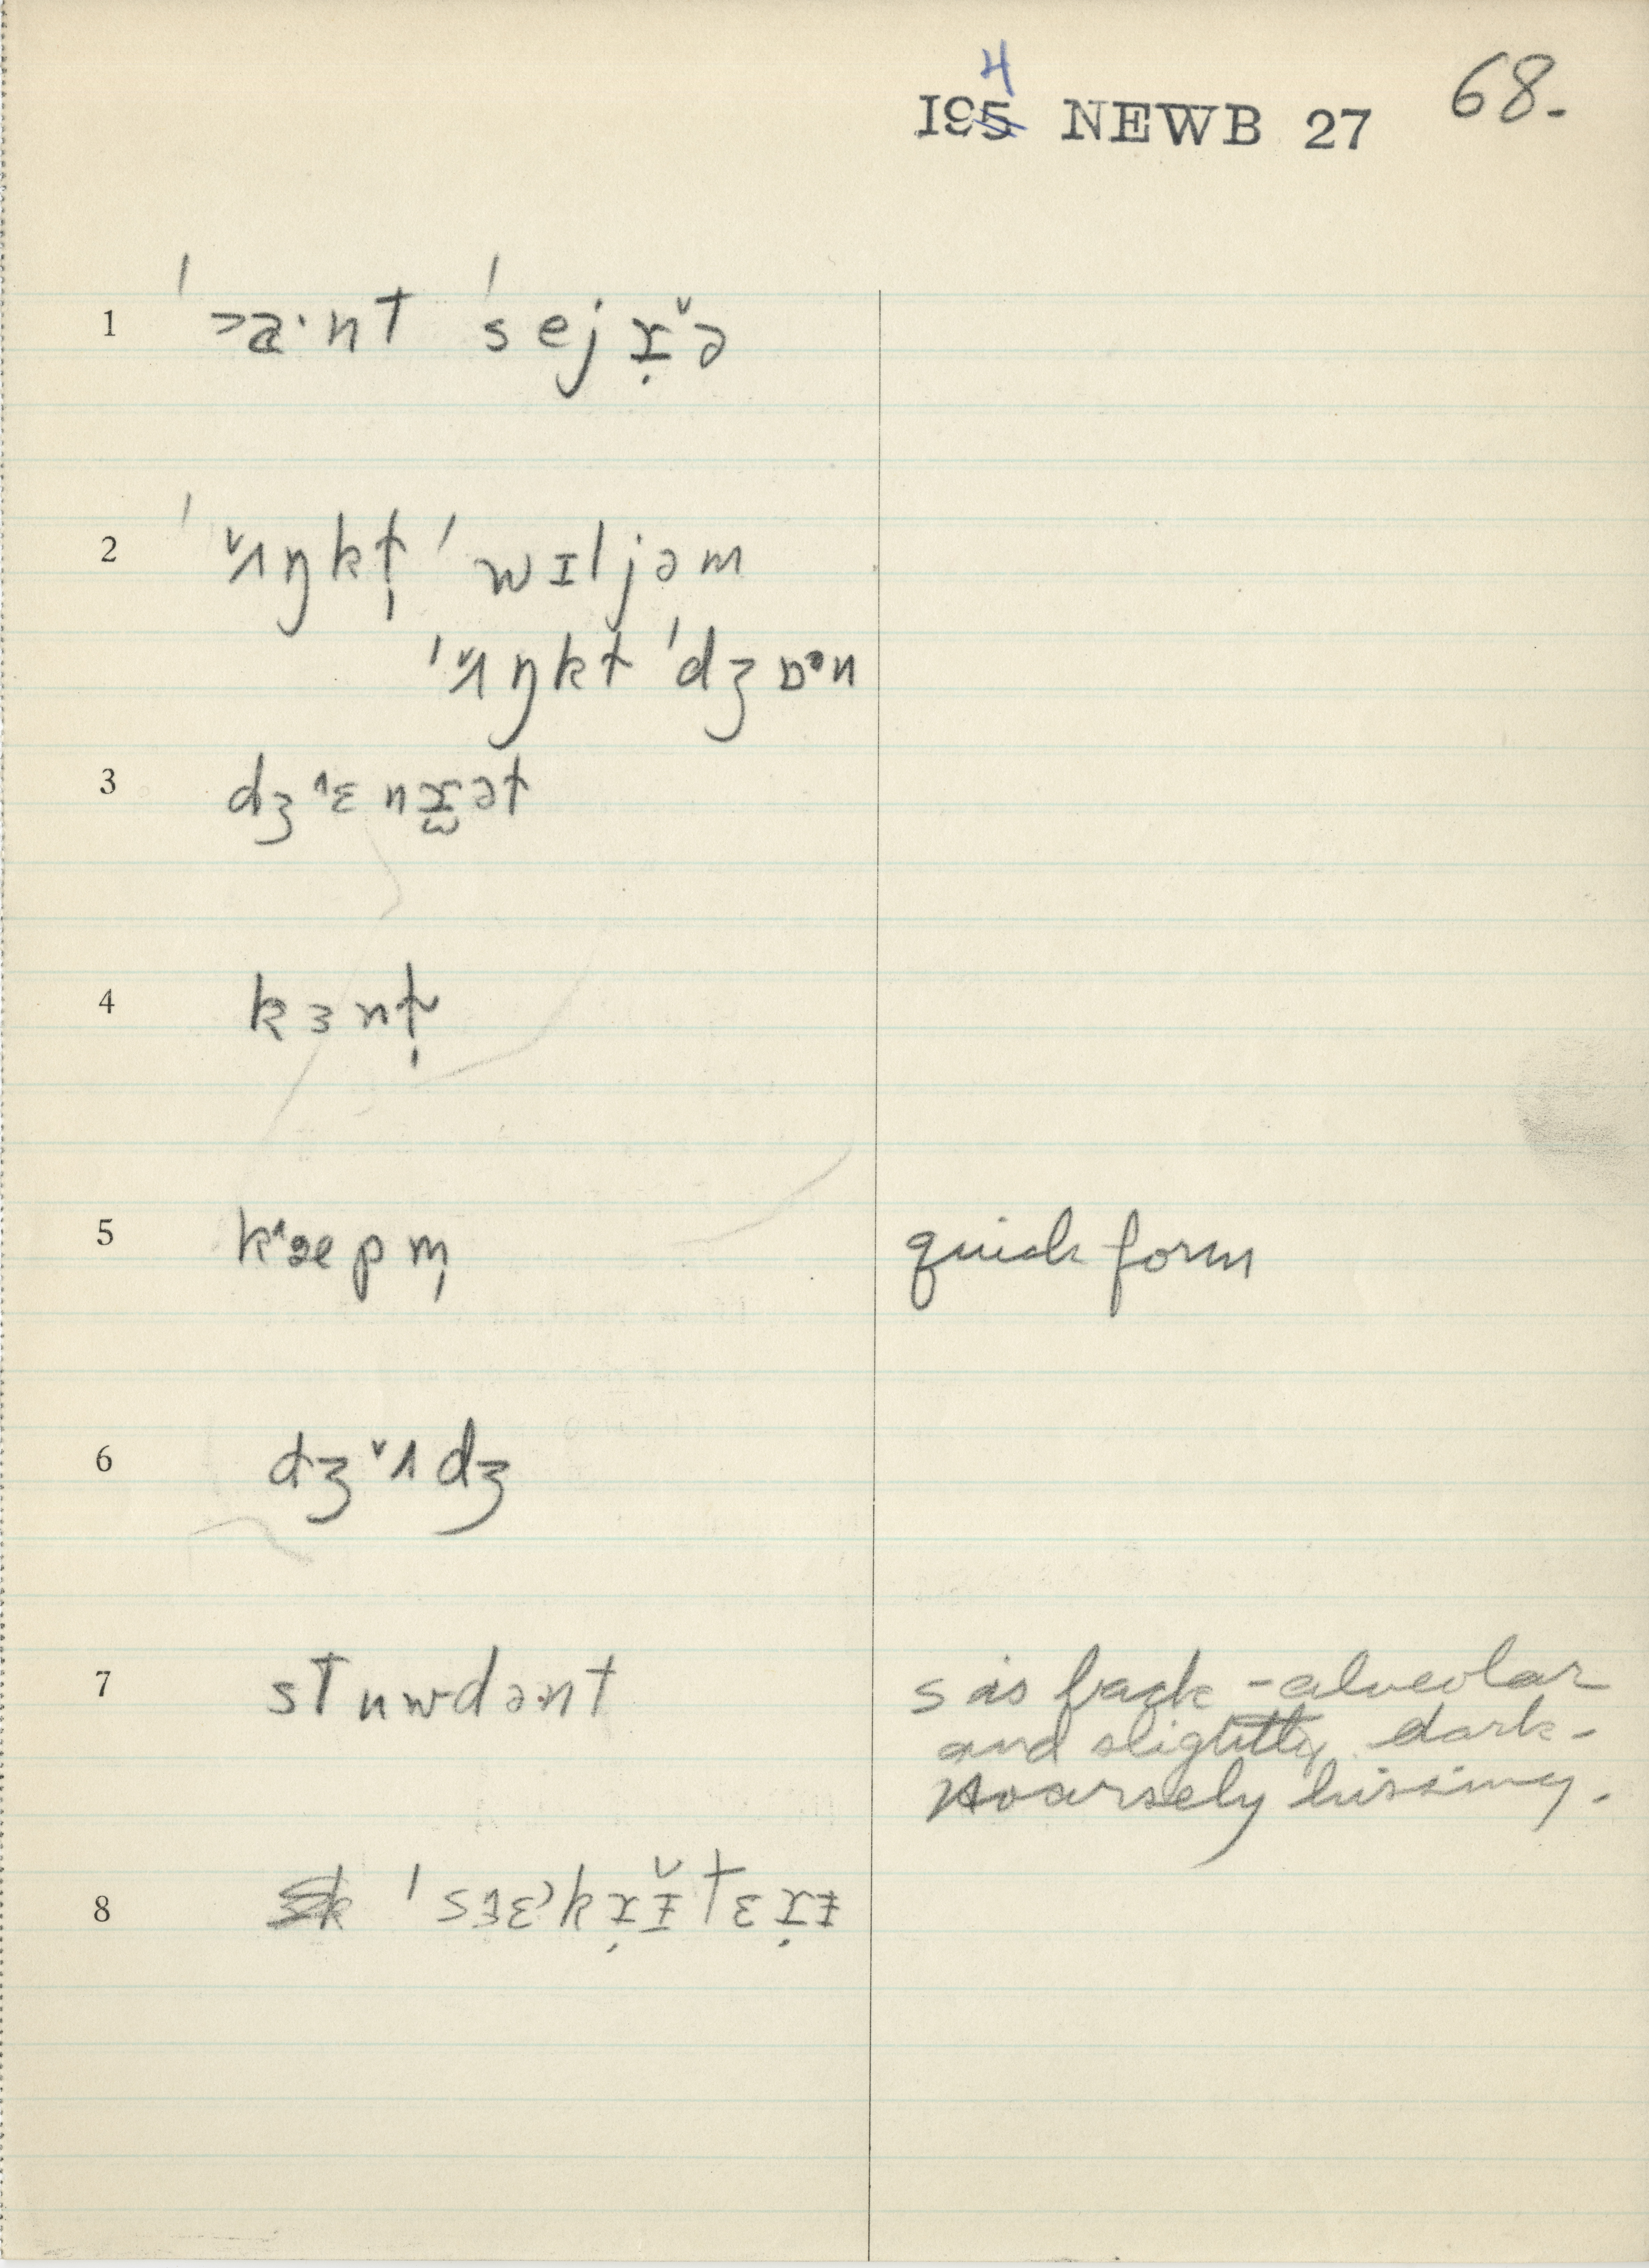 194 NEWB 27 68.
1 ˈ˃a·nt ˈsejɤ̣˅ə
2 ˈ˅ʌŋkt̩ ˈwɪljəm
ˈ˅ʌŋkt ˈdʒɒᵊn
3 dʒ˄ɛnɤ̫ət
4 kɜnt̩
5 k˄æpm̩ quick form
6 dʒ˅ʌdʒ
7 stuwdənt s is back-alveolar
and slightly dark-
Hoarsely hissing.
8